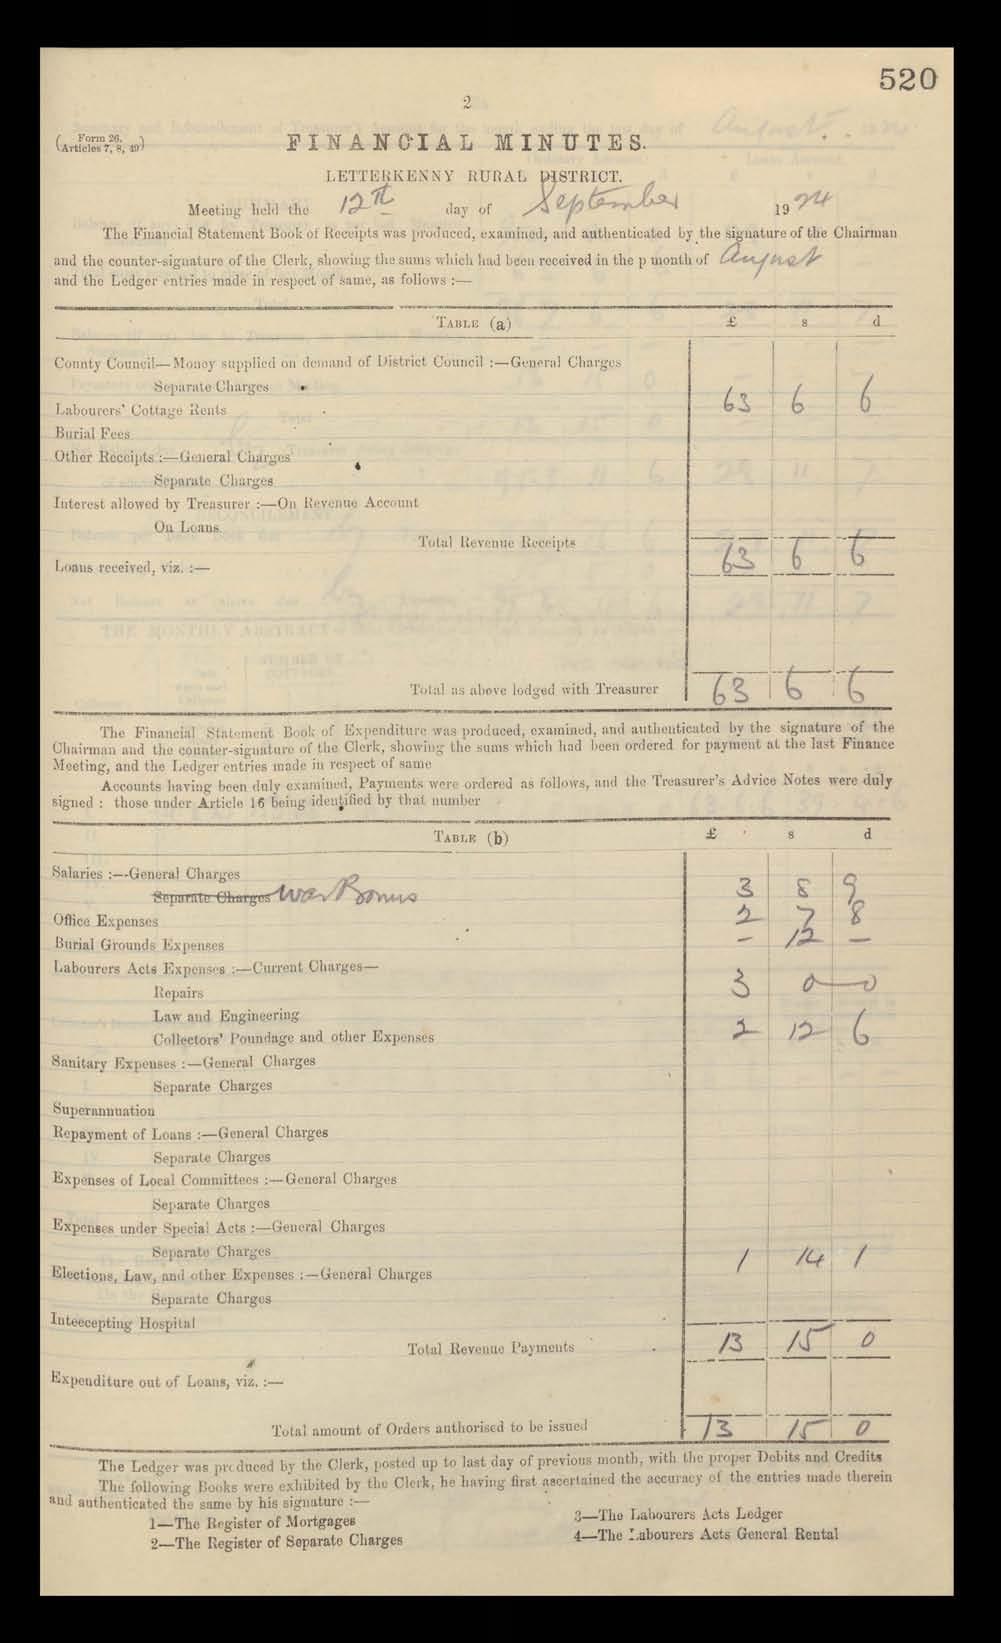 520
2
(Form 26. Articles 7, 8, 49)
FINANCIAL MINUTES.
LETTERKENNY RURAL DISTRICT.
Meeting held the 12th day of September 1924
The Financial Statement Book of Receipts was produced, examined, and authenticated by the signature of the Chairman
and the counter-signature of the Clerk, showing the sums which had been received in the p month of August
and the Ledger entries made in respect of same, as follows :—
TABLE (a) £ s d
County Council—Money supplied on demand of District Council :—General Charges
Separate Charges
Labourers' Cottage Rents 63 6 6
Burial Fees
Other Receipts :—General Charges
Separate Charges
Interest allowed by Treasurer :—On Revenue Account
On Loans
Total Revenue Receipts 63 6 6
Loans received, viz. :—
Total as above lodged with Treasurer 63 6 6
The Financial Statement Book of Expenditure was produced, examined, and authenticated by the signature of the
Chairman and the counter-signature of the Clerk, showing the sums which had been ordered for payment at the last Finance
Meeting, and the Ledger entries made in respect of same
Accounts having been duly examined, Payments were ordered as follows, and the Treasurer's Advice Notes were duly
signed : those under Article 16 being identified by that number
TABLE (b) £ s d
Salaries :—General Charges
Separate Charges War Bonus 3 8 9
Office Expenses 2 7 8
Burial Grounds Expenses — 12 —
Labourers Acts Expenses :—Current Charges—
Repairs 3 0 0
Law and Engineering
Collectors' Poundage and other Expenses 2 12 6
Sanitary Expenses :—General Charges
Separate Charges
Superannuation
Repayment of Loans :—General Charges
Separate Charges
Expenses of Local Committees :—General Charges
Separate Charges
Expenses under Special Acts :—General Charges
Separate Charges
Elections, Law, and other Expenses :—General Charges 1 14 1
Separate Charges
Inteecepting Hospital
Total Revenue Payments 13 15 0
Expenditure out of Loans, viz. :—
Total amount of Orders authorised to be issued 13 15 0
The Ledger was produced by the Clerk, posted up to last day of previous month, with the proper Debits and Credits
The following Books were exhibited by the Clerk, he having first ascertained the accuracy of the entries made therein
and authenticated the same by his signature :—
1—The Register of Mortgages
2—The Register of Separate Charges
3—The Labourers Acts Ledger
4—The Labourers Acts General Rental